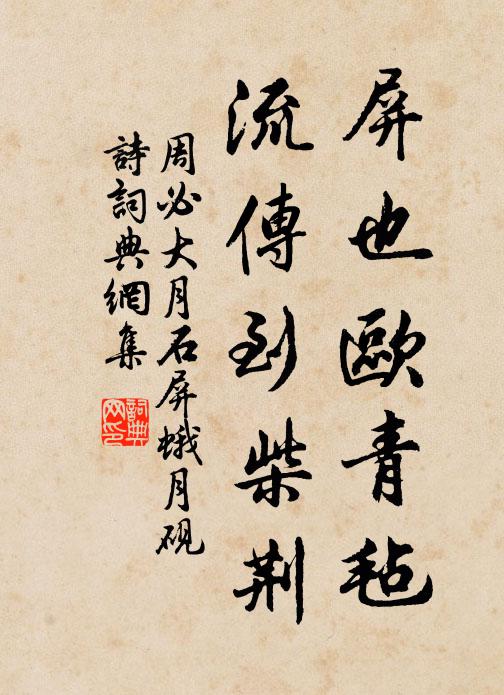 屏也歐青毡
流傳到柴荆
周必大月石屏蛾月硯
詩詞典網集
詞典网印